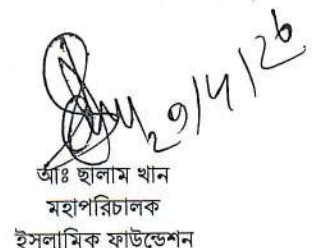 ২৩/৭/২৬
আঃ ছালাম খান
মহাপরিচালক
ইসলামিক ফাউন্ডেশন